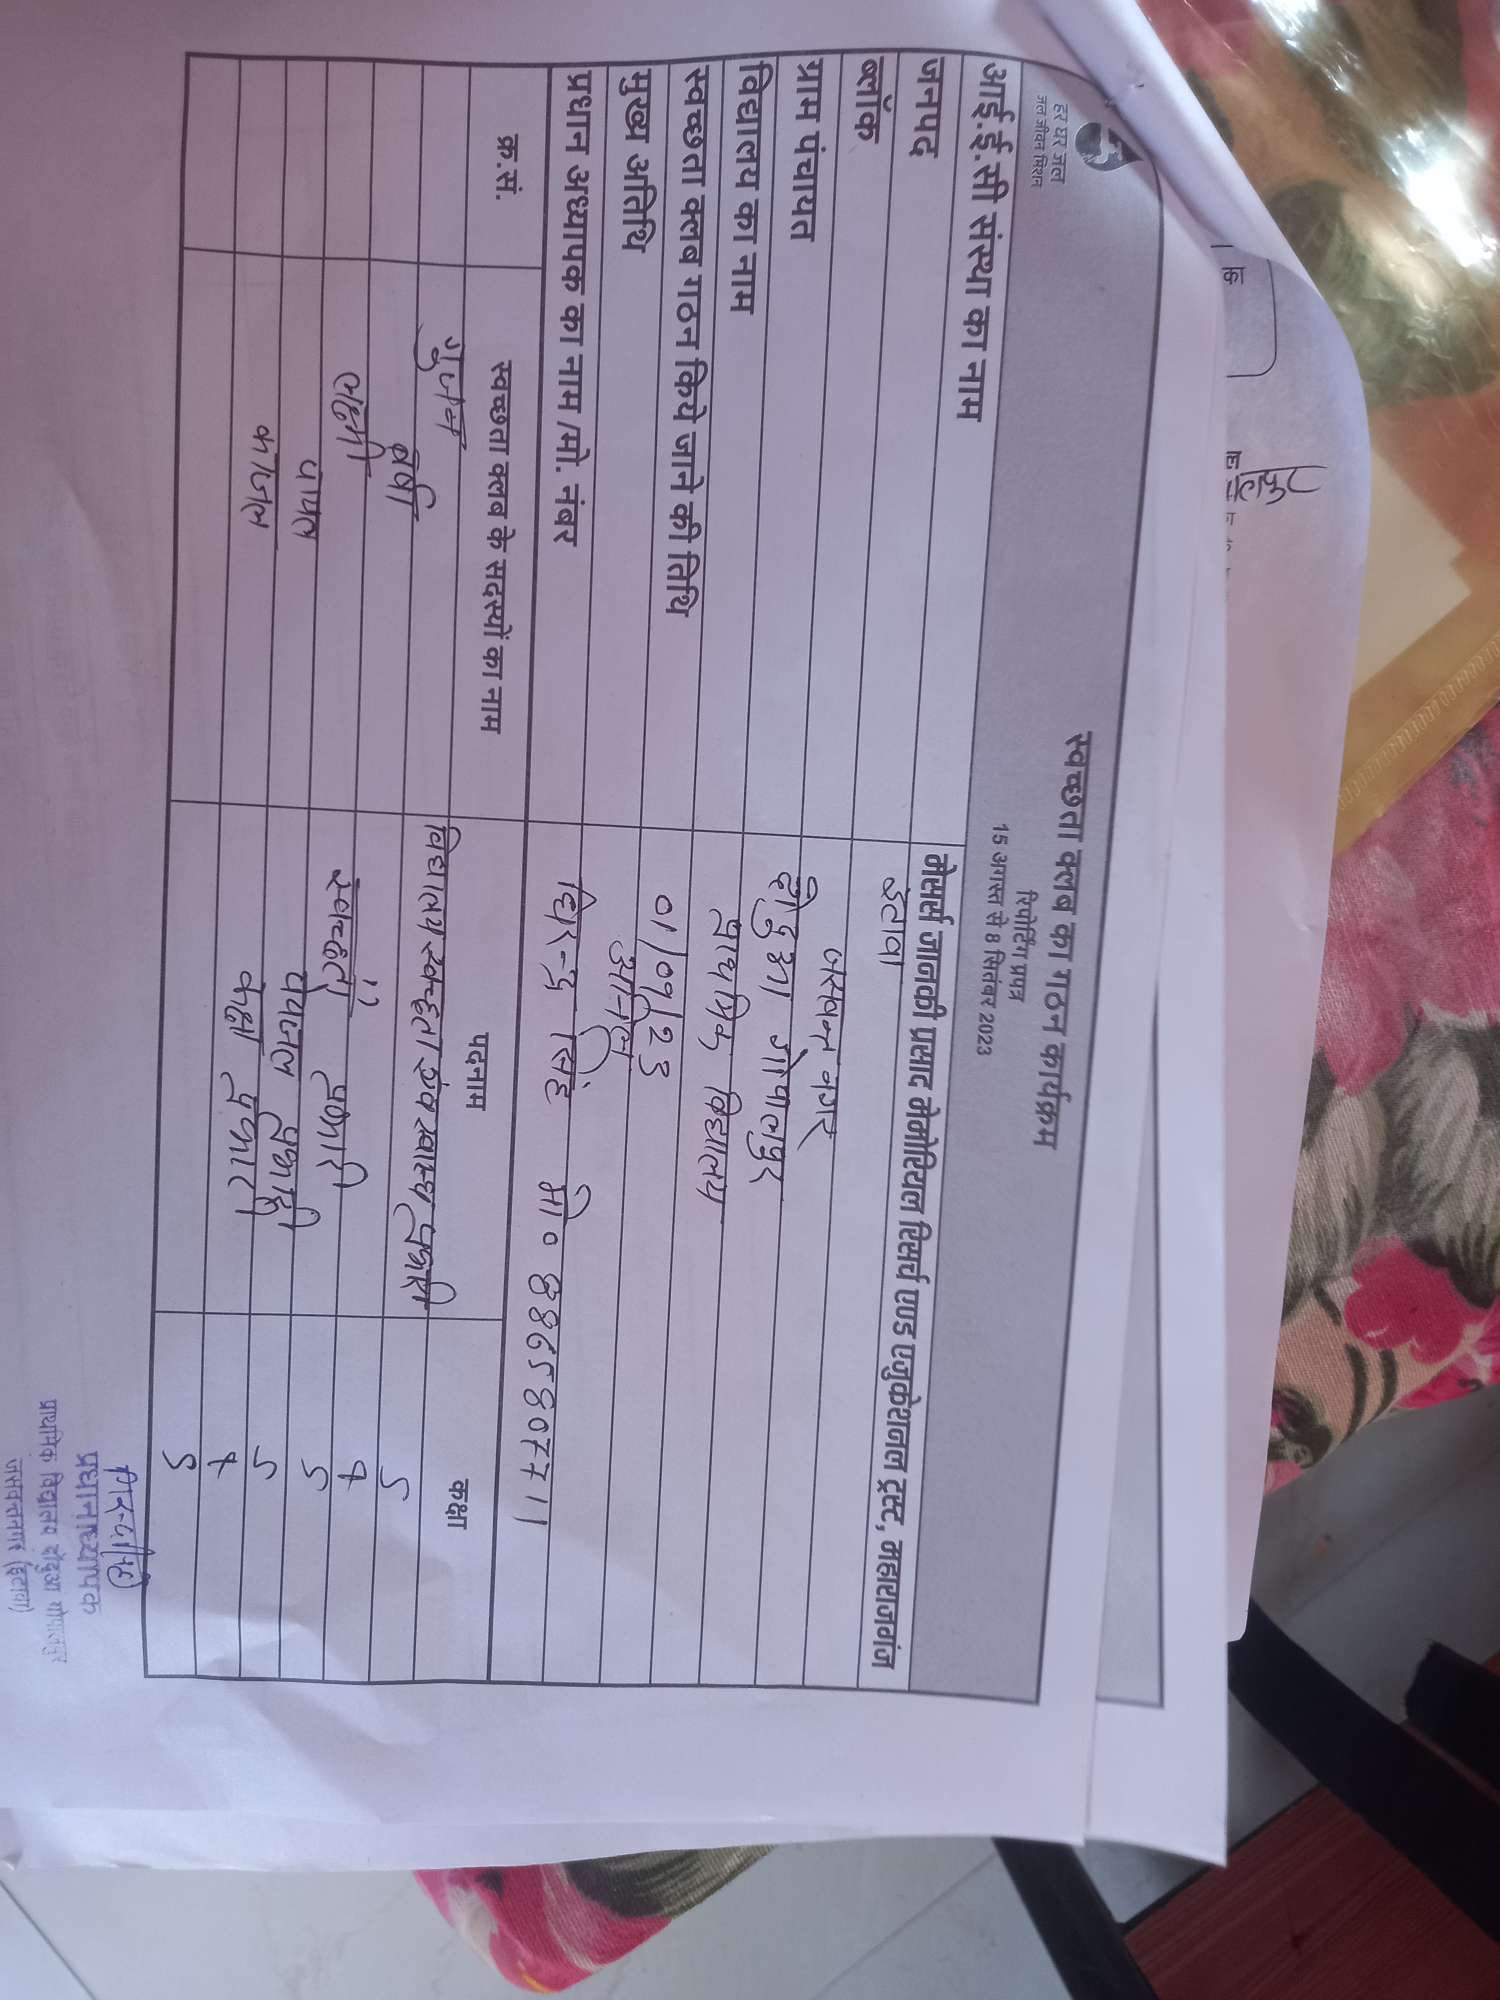 हर घर जल
जल जीवन मिशन
स्वच्छता क्लब का गठन कार्यक्रम
रिपोर्टिंग प्रपत्र
15 अगस्त से 8 सितंबर 2023
आई.ई.सी संस्था का नाम मेसर्स जानकी प्रसाद मेमोरियल रिसर्च एण्ड एजुकेशनल ट्रस्ट, महाराजगंज
जनपद इटावा
ब्लॉक जसवन्त नगर
ग्राम पंचायत दौदुआ गोपालपुर
विद्यालय का नाम प्राथमिक विद्यालय
स्वच्छता क्लब गठन किये जाने की तिथि 01/09/23
मुख्य अतिथि
प्रधान अध्यापक का नाम /मो. नंबर सिंह मो० 8865807711
क्र.सं. स्वच्छता क्लब के सदस्यों का नाम पदनाम कक्षा
विद्यालय स्वच्छता एंव स्वास्थ्य प्रभारी 5
" 4
लक्ष्मी स्वच्छता प्रभारी 5
पायल पेयजल प्रभारी 5
काजल कक्षा प्रभारी 4
5
प्रधानाध्यापक
प्राथमिक विद्यालय दौदुआ गोपालपुर
जसवन्तनगर (इटावा)
का